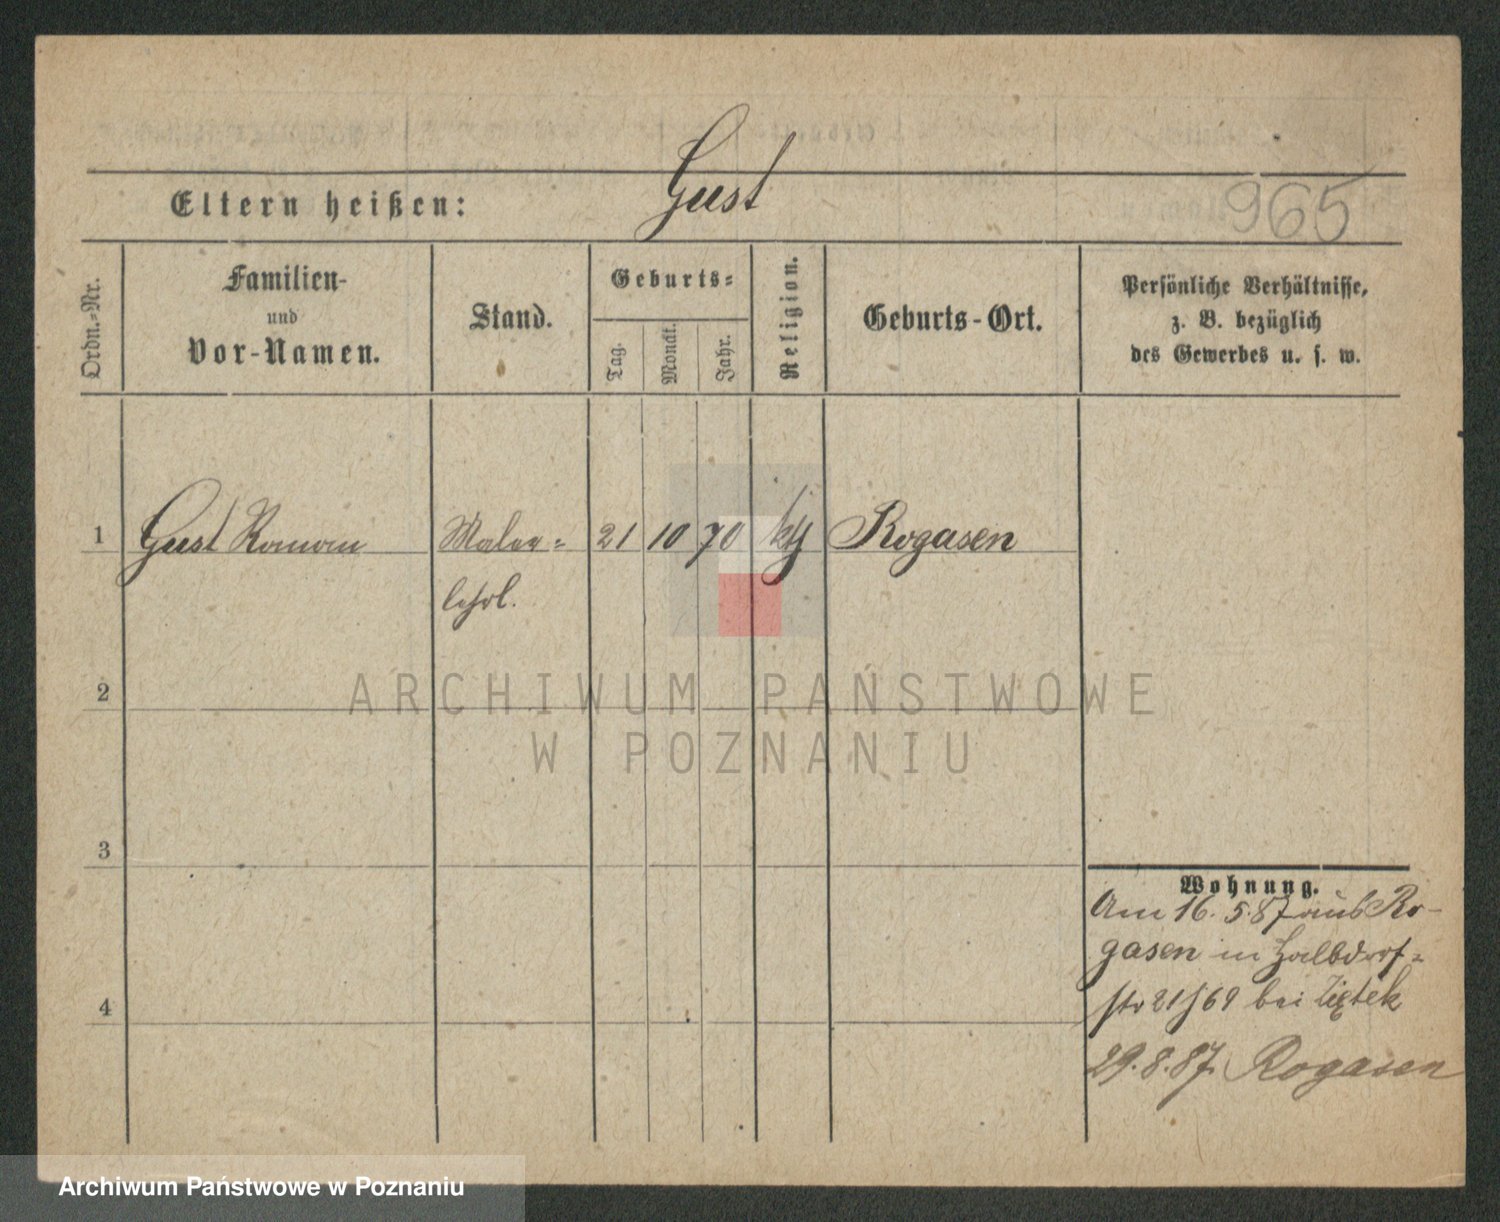 Gust
Eltern heißen:
965
Ordn.-Nr.
Familien-
und
Vor-Namen.
Stand.
Geburts-
Tag.
Monat.
Jahr.
Religion.
Geburts-Ort.
Persönliche Verhältnisse,
z. B. bezüglich
des Gewerbes u. s. w.
1 Gust Roman Maler- 21 10 70 kth Rogasen
lehrl.
2
3
4
Wohnung.
Am 16. 5. 87 aus Ro-
gasen in Halbdorf-
str 21/69 bei Ziętek
29. 8. 87. Rogasen
ARCHIWUM PAŃSTWOWE
W POZNANIU
Archiwum Państwowe w Poznaniu